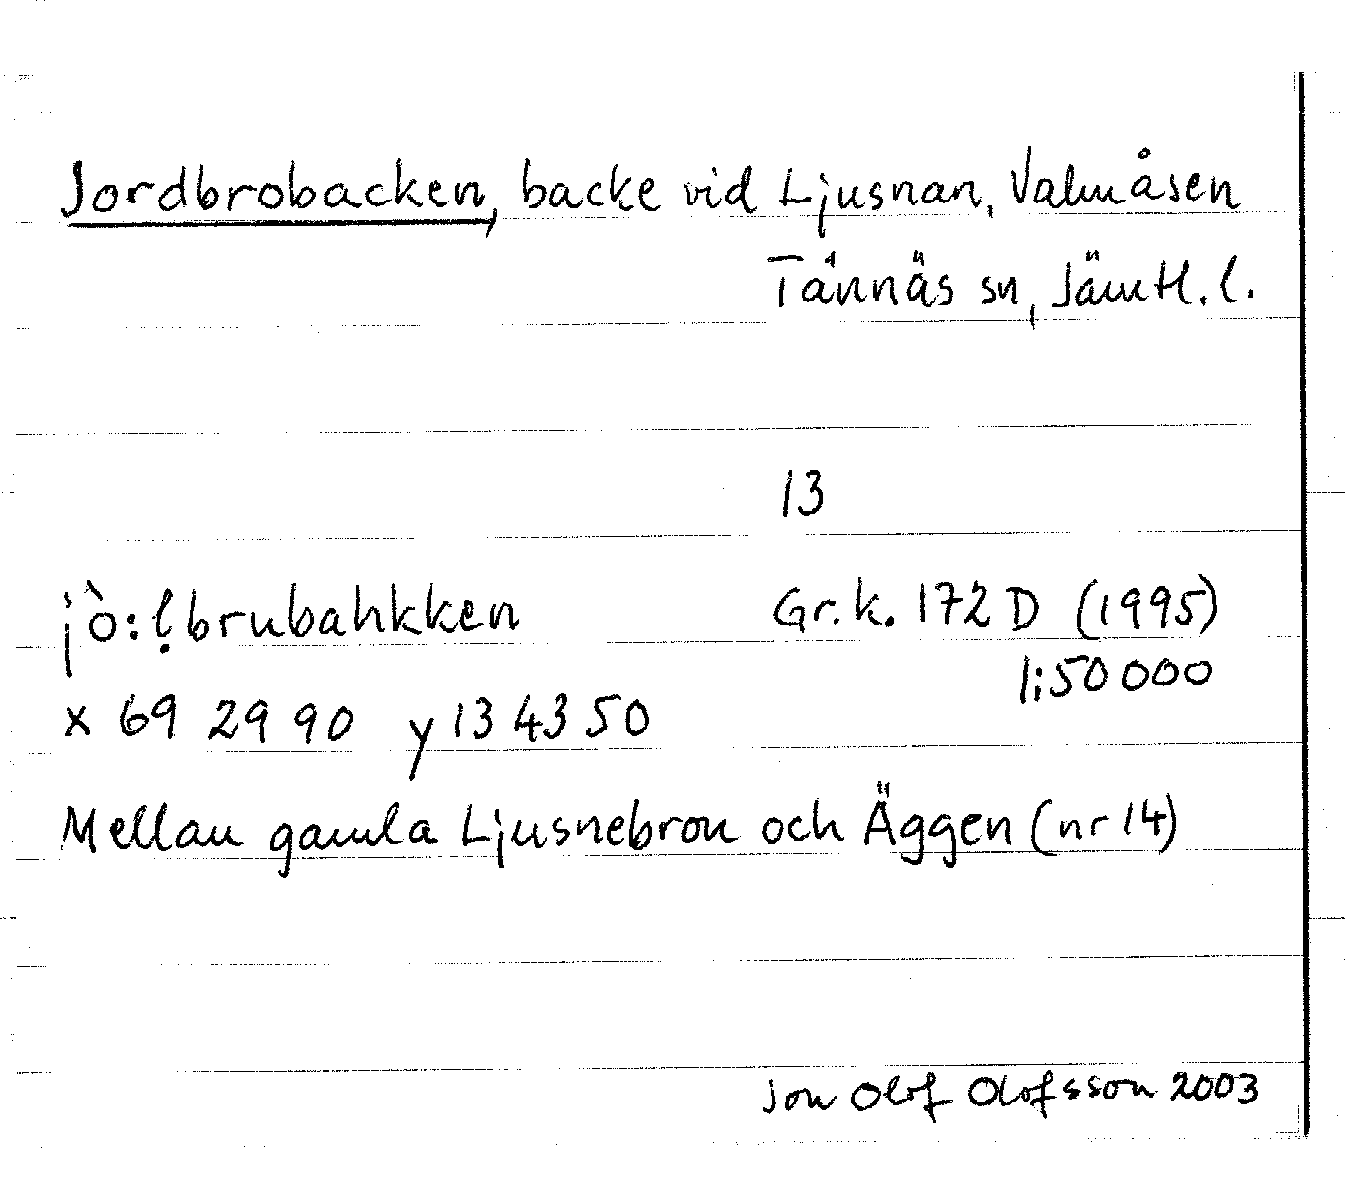 Jordbrobacken, backe vid Ljusnan, Valmåsen
Tännäs sn, Jämtl. l.
13
jò:ḷbrubahkken
Gr.k. 172 D (1995)
1:50 000
x 69 29 90 y 13 43 50
Mellan gamla Ljusnebron och Äggen (nr 14)
Jon Olof Olofsson 2003